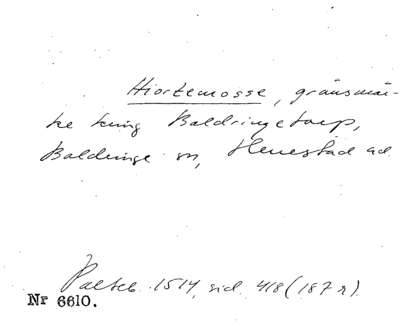 Hiortemosse, gränsmär-
ke kring Baldringetorp,
Baldringe sn, Herrestad hd
Palteb. 1514, sid. 418 (187 r).
Nr 6610.